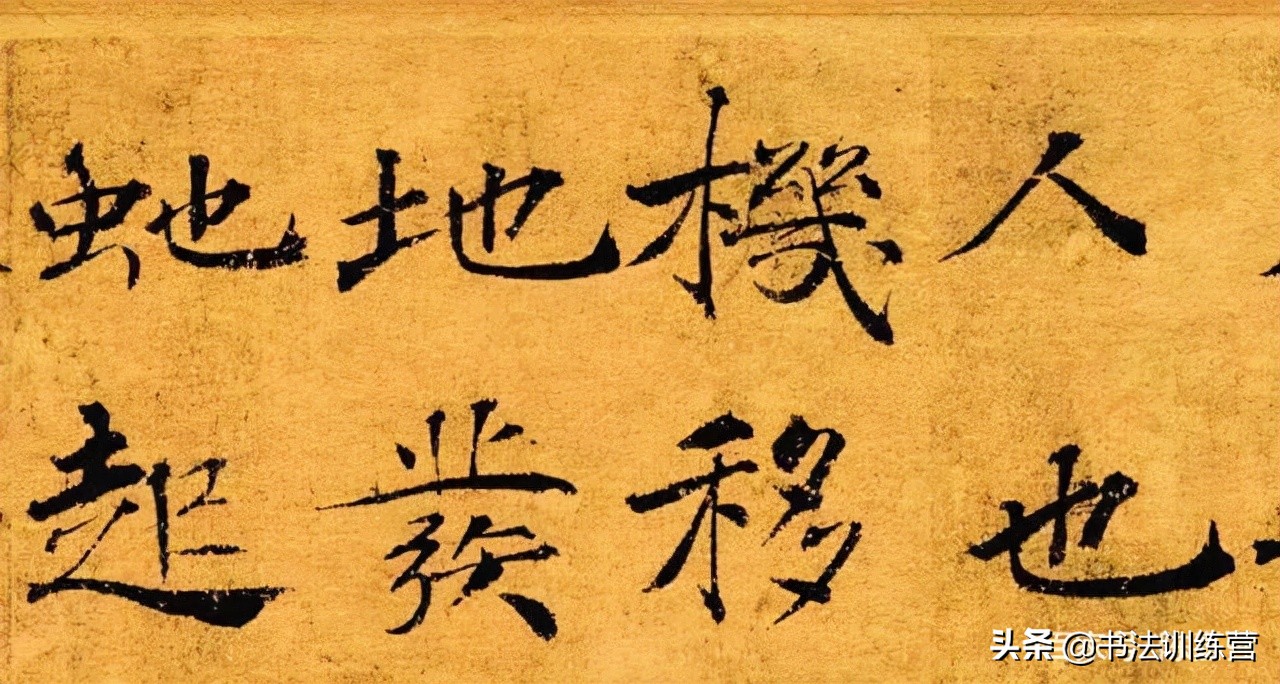 人也
機移
地發
虵起
头条 @书法训练营